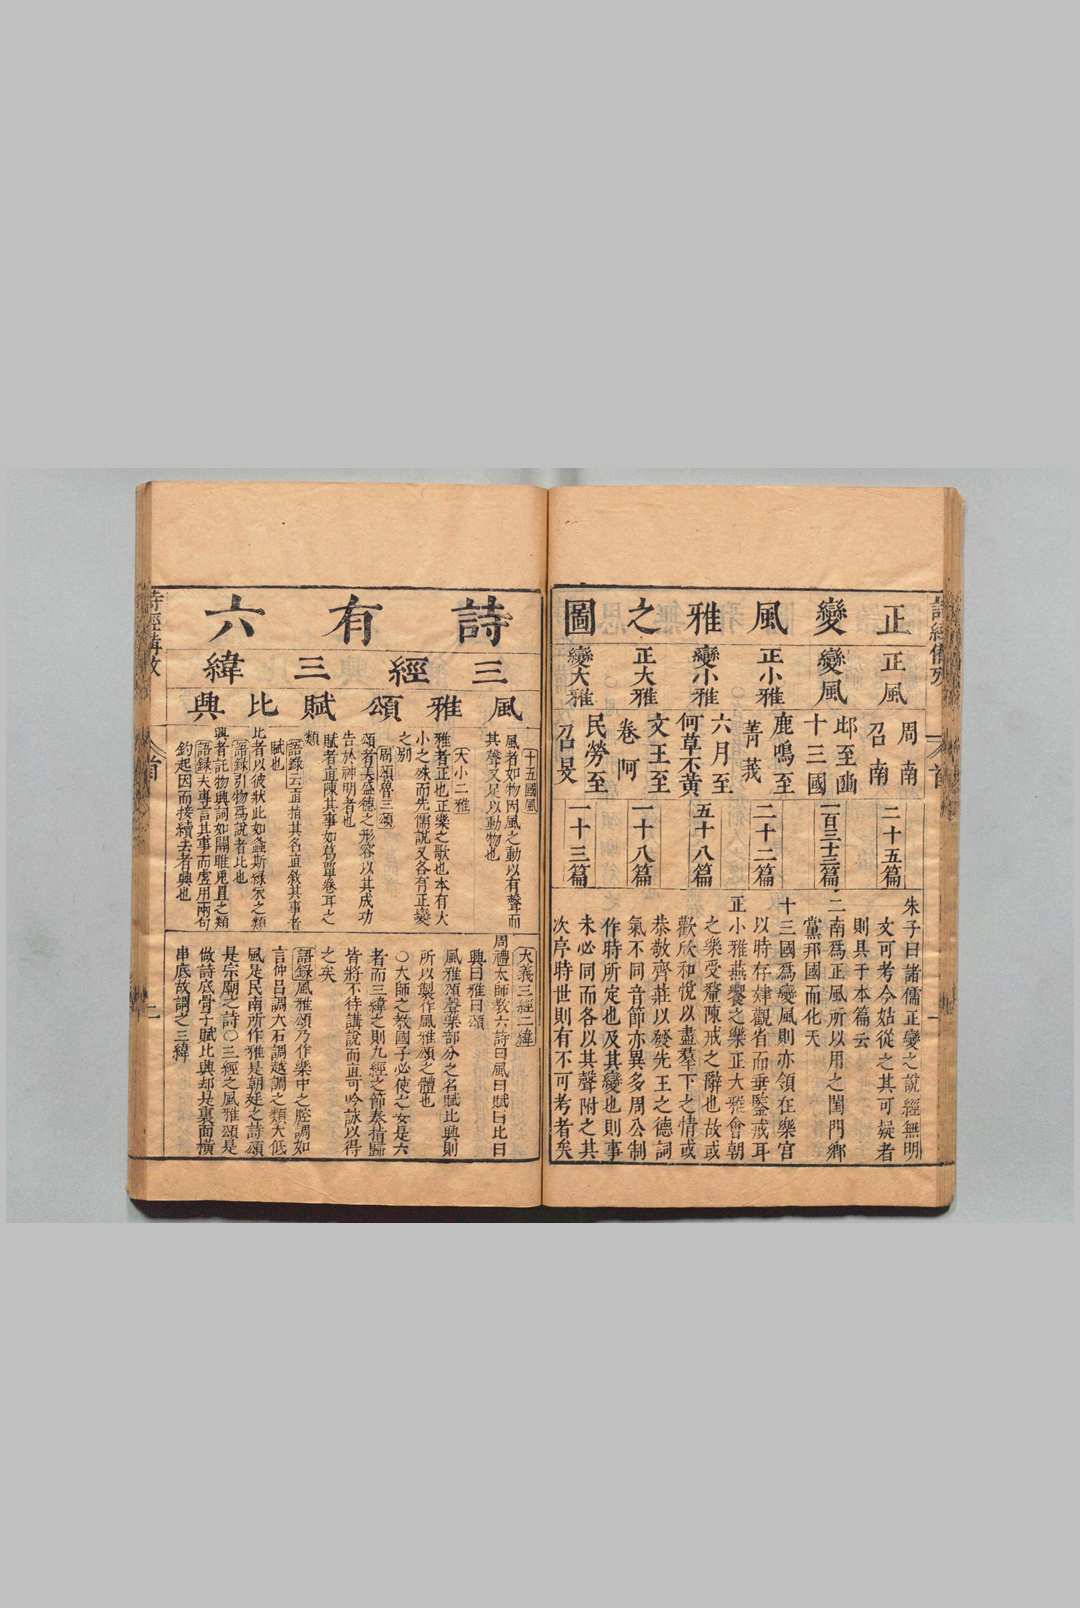 正變風雅之圖
正風
變風
正小雅
變小雅
正大雅
變大雅
周南
召南
邶至豳
十三國
鹿鳴至
菁莪
六月至
何草不黃
文王至
卷阿
民勞至
召旻
二十五篇
一百三十三篇
二十二篇
五十八篇
一十八篇
一十三篇
朱子曰諸儒正變之說經無明
文可考今姑從之其可疑者
則具于本篇云
二南爲正風所以用之閨門鄉
黨邦國而化天
十三國爲變風則亦領在樂官
以時存肄觀省而垂鑒戒耳
正小雅燕饗之樂正大雅會朝
之樂受釐陳戒之辭也故或
歡欣和悅以盡羣下之情或
恭敬齊莊以發先王之德詞
氣不同音節亦異多周公制
作時所定也及其變也則事
未必同而各以其聲附之其
次序時世則有不可考者矣
首
一
詩有六
三經三緯
風雅頌賦比興
十五國風
風者如物因風之動以有聲而
其聲又足以動物也
大小二雅
雅者正也正樂之歌也本有大
小之殊而先儒說又各有正變
之別
周頌魯三頌
頌者美盛德之形容以其成功
告於神明者也
賦者直陳其事如葛覃卷耳之
類
語錄云直指其名直敘其事者
賦也
比者以彼狀此如螽斯綠衣之類
語錄引物爲說者比也
興者託物興詞如關雎兎罝之類
語錄夫專言其事而虛用兩句
釣起因而接續去者興也
大義三經三緯
周禮太師教六詩曰風曰賦曰比曰
興曰雅曰頌
風雅頌聲樂部分之名賦比興則
所以製作風雅頌之體也
〇大師之教國子必使之女是六
者而三緯之則九經之節奏指歸
皆將不待講說而直可吟詠以得
之矣
語錄風雅頌乃作樂中之腔調如
言仲呂調大石調越調之類大低
風是民南所作雅是朝廷之詩頌
是宗廟之詩〇三經之風雅頌是
做詩底骨子賦比興却是裏面橫
串底故謂之三緯
首
二